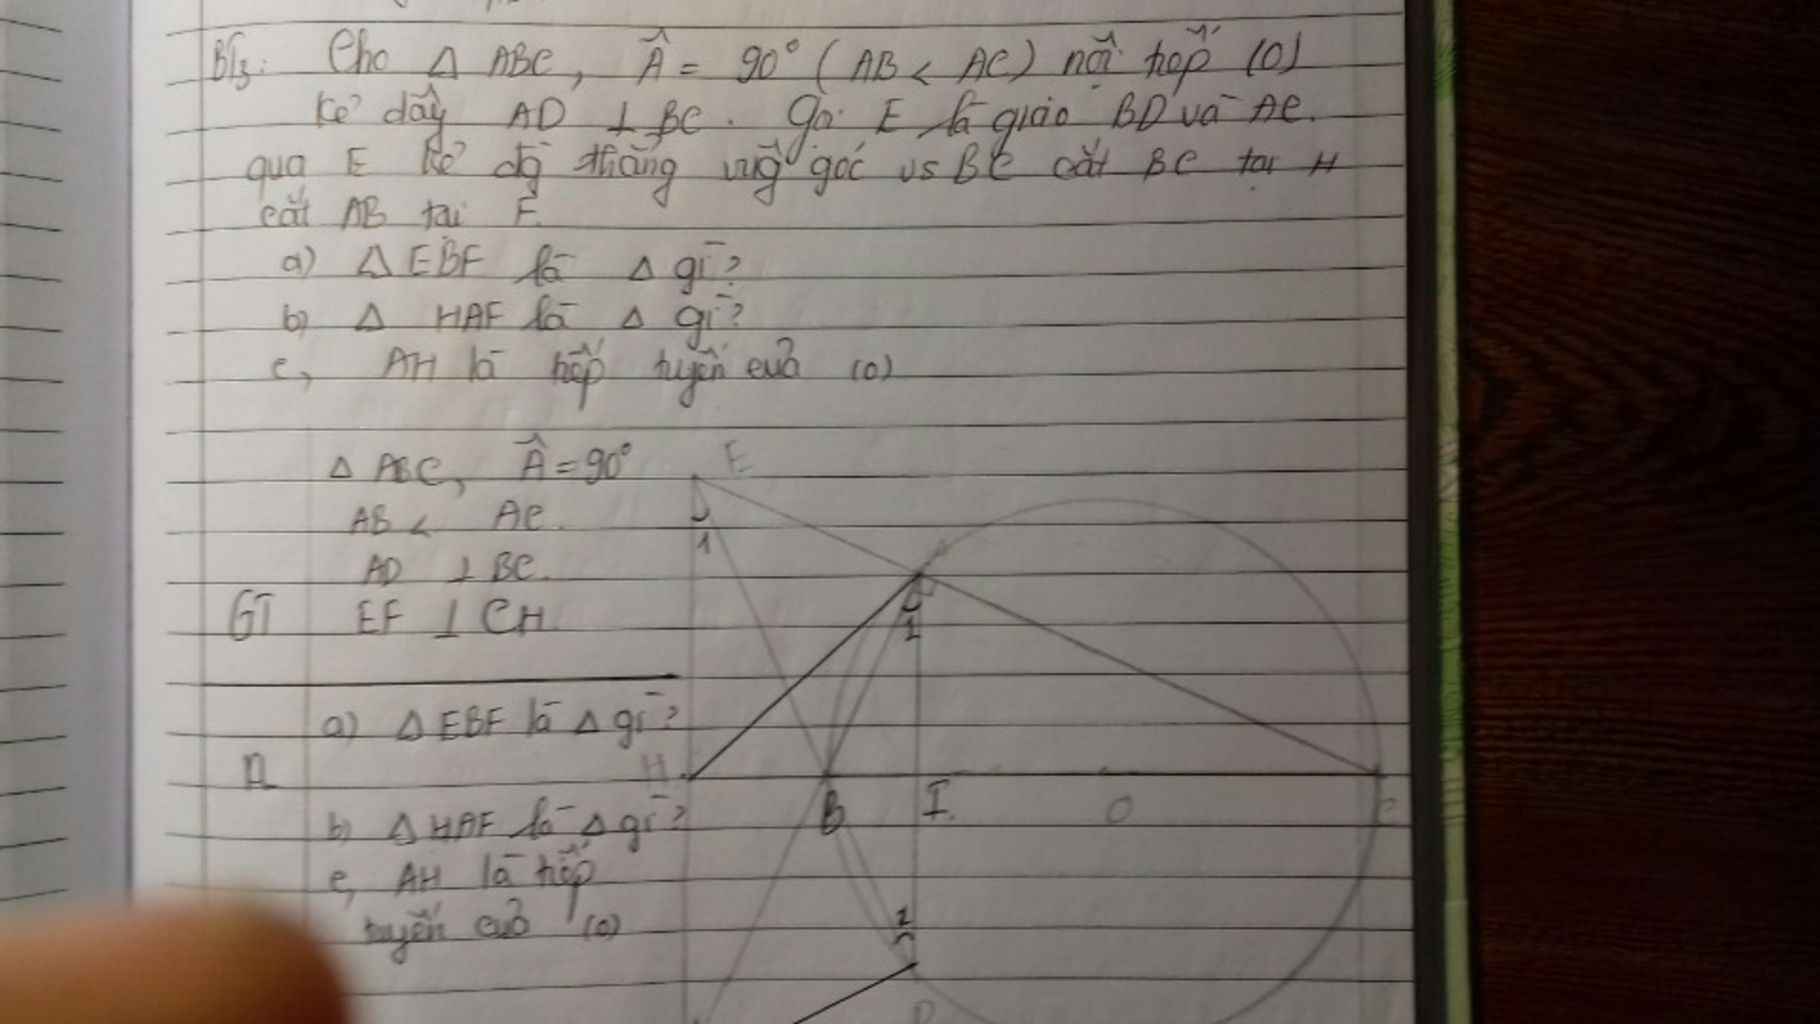 BT3: Cho Δ ABC, Â = 90° (AB < AC) nội tiếp (O)
Kẻ dây AD ⊥ BC. Gọi E là giao BD và AC.
qua E kẻ đg thẳng vug góc vs BC cắt BC tại H
cắt AB tại F.
a) Δ EBF là Δ gì?
b) Δ HAF là Δ gì?
c, AH là tiếp tuyến của (O)
Δ ABC, Â = 90°
AB < AC.
AD ⊥ BC.
GT EF ⊥ CH
a) Δ EBF là Δ gì?
b) Δ HAF là Δ gì?
c, AH là tiếp
tuyến của (O)
E
1
A
1
H
B
I
O
C
2
D